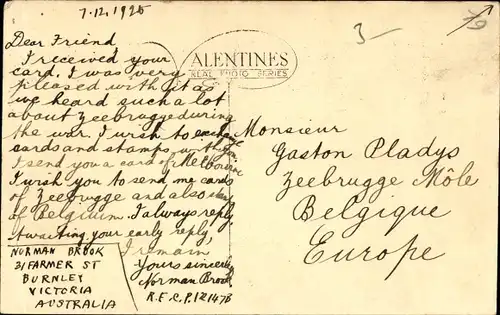 7.12.1925
Dear Friend
I received your
card. I was very
pleased with it as
we heard such a lot
about Zeebrugge during
the war. I wish to exchange
cards and stamps with you
I send you a card of Melbourne
I wish you to send me cards
of Zeebrugge and also
of Belgium. I always reply.
Awaiting your early reply,
I remain
Yours sincerely
Norman Brook
R.E.C.P. 12147B
NORMAN BROOK
31 FARMER ST
BURNLEY
VICTORIA
AUSTRALIA
VALENTINES
REAL PHOTO SERIES
3
Monsieur
Gaston Pladys
Zeebrugge Môle
Belgique
Europe